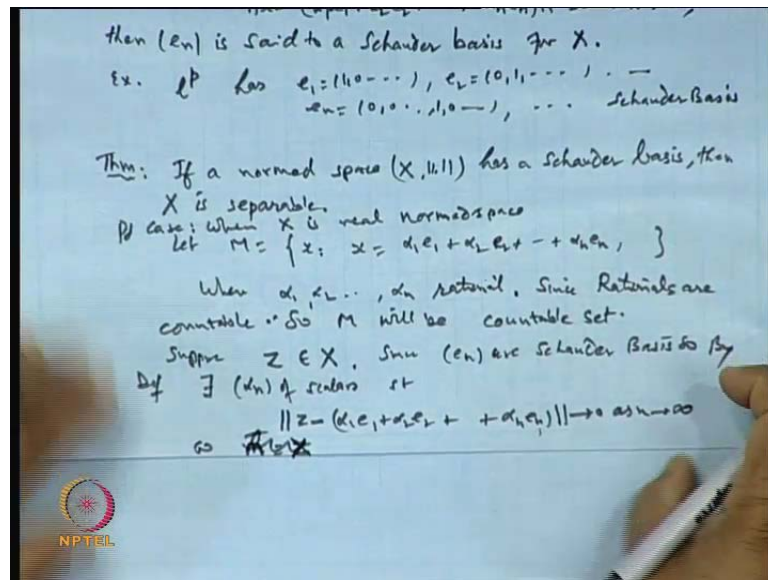 then (en) is said to a Schauder basis for X.
Ex. l^p has e₁=(1,0---), e₂=(0,1,---). —
en=(0,0..,1,0—), ... Schauder Basis
Thm: If a normed space (X, ||.||) has a Schauder basis, then
X is separable.
Pf case: When X is real normed space
Let M = { x: x = α₁e₁ + α₂e₂ + - + αnen, }
When α₁, α₂.., αn rational. Since Rationals are
countable. So M will be countable set.
Suppse Z ∈ X. Since (en) are Schauder Basis So By
Def ∃ (αn) of scalars st
||Z-(α₁e₁+α₂e₂+ +αnen)||→0 as n→∞
so
NPTEL